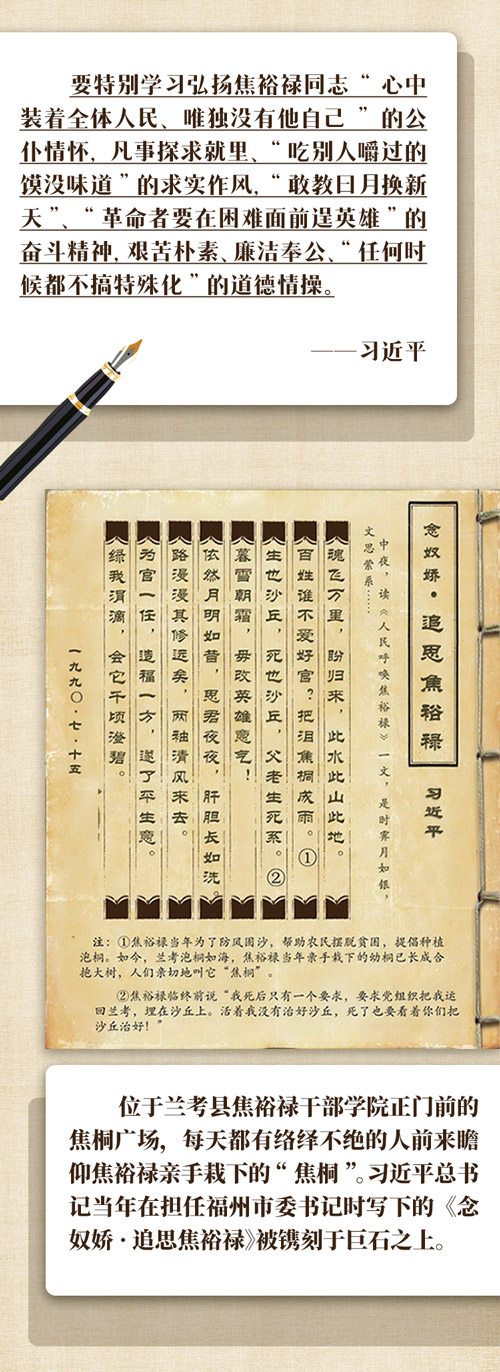 要特别学习弘扬焦裕禄同志“心中
装着全体人民、唯独没有他自己”的公
仆情怀,凡事探求就里、“吃别人嚼过的
馍没味道”的求实作风,“敢教日月换新
天”、“革命者要在困难面前逞英雄”的
奋斗精神,艰苦朴素、廉洁奉公、“任何时
候都不搞特殊化”的道德情操。
——习近平
念奴娇·追思焦裕禄
习近平
中夜，读《人民呼唤焦裕禄》一文，是时霁月如银，
文思萦系……
魂飞万里，盼归来，此水此山此地。
百姓谁不爱好官？把泪焦桐成雨。①
生也沙丘，死也沙丘，父老生死系。②
暮雪朝霜，毋改英雄意气！
依然月明如昔，思君夜夜，肝胆长如洗。
路漫漫其修远矣，两袖清风来去。
为官一任，造福一方，遂了平生意。
绿我涓滴，会它千顷澄碧。
一九九〇·七·十五
注：①焦裕禄当年为了防风固沙，帮助农民摆脱贫困，提倡种植
泡桐。如今，兰考泡桐如海，焦裕禄当年亲手栽下的幼桐已长成合
抱大树，人们亲切地叫它“焦桐”。
②焦裕禄临终前说“我死后只有一个要求，要求党组织把我运
回兰考，埋在沙丘上。活着我没有治好沙丘，死了也要看着你们把
沙丘治好！”
位于兰考县焦裕禄干部学院正门前的
焦桐广场，每天都有络绎不绝的人前来瞻
仰焦裕禄亲手栽下的“焦桐”。习近平总书
记当年在担任福州市委书记时写下的《念
奴娇·追思焦裕禄》被镌刻于巨石之上。